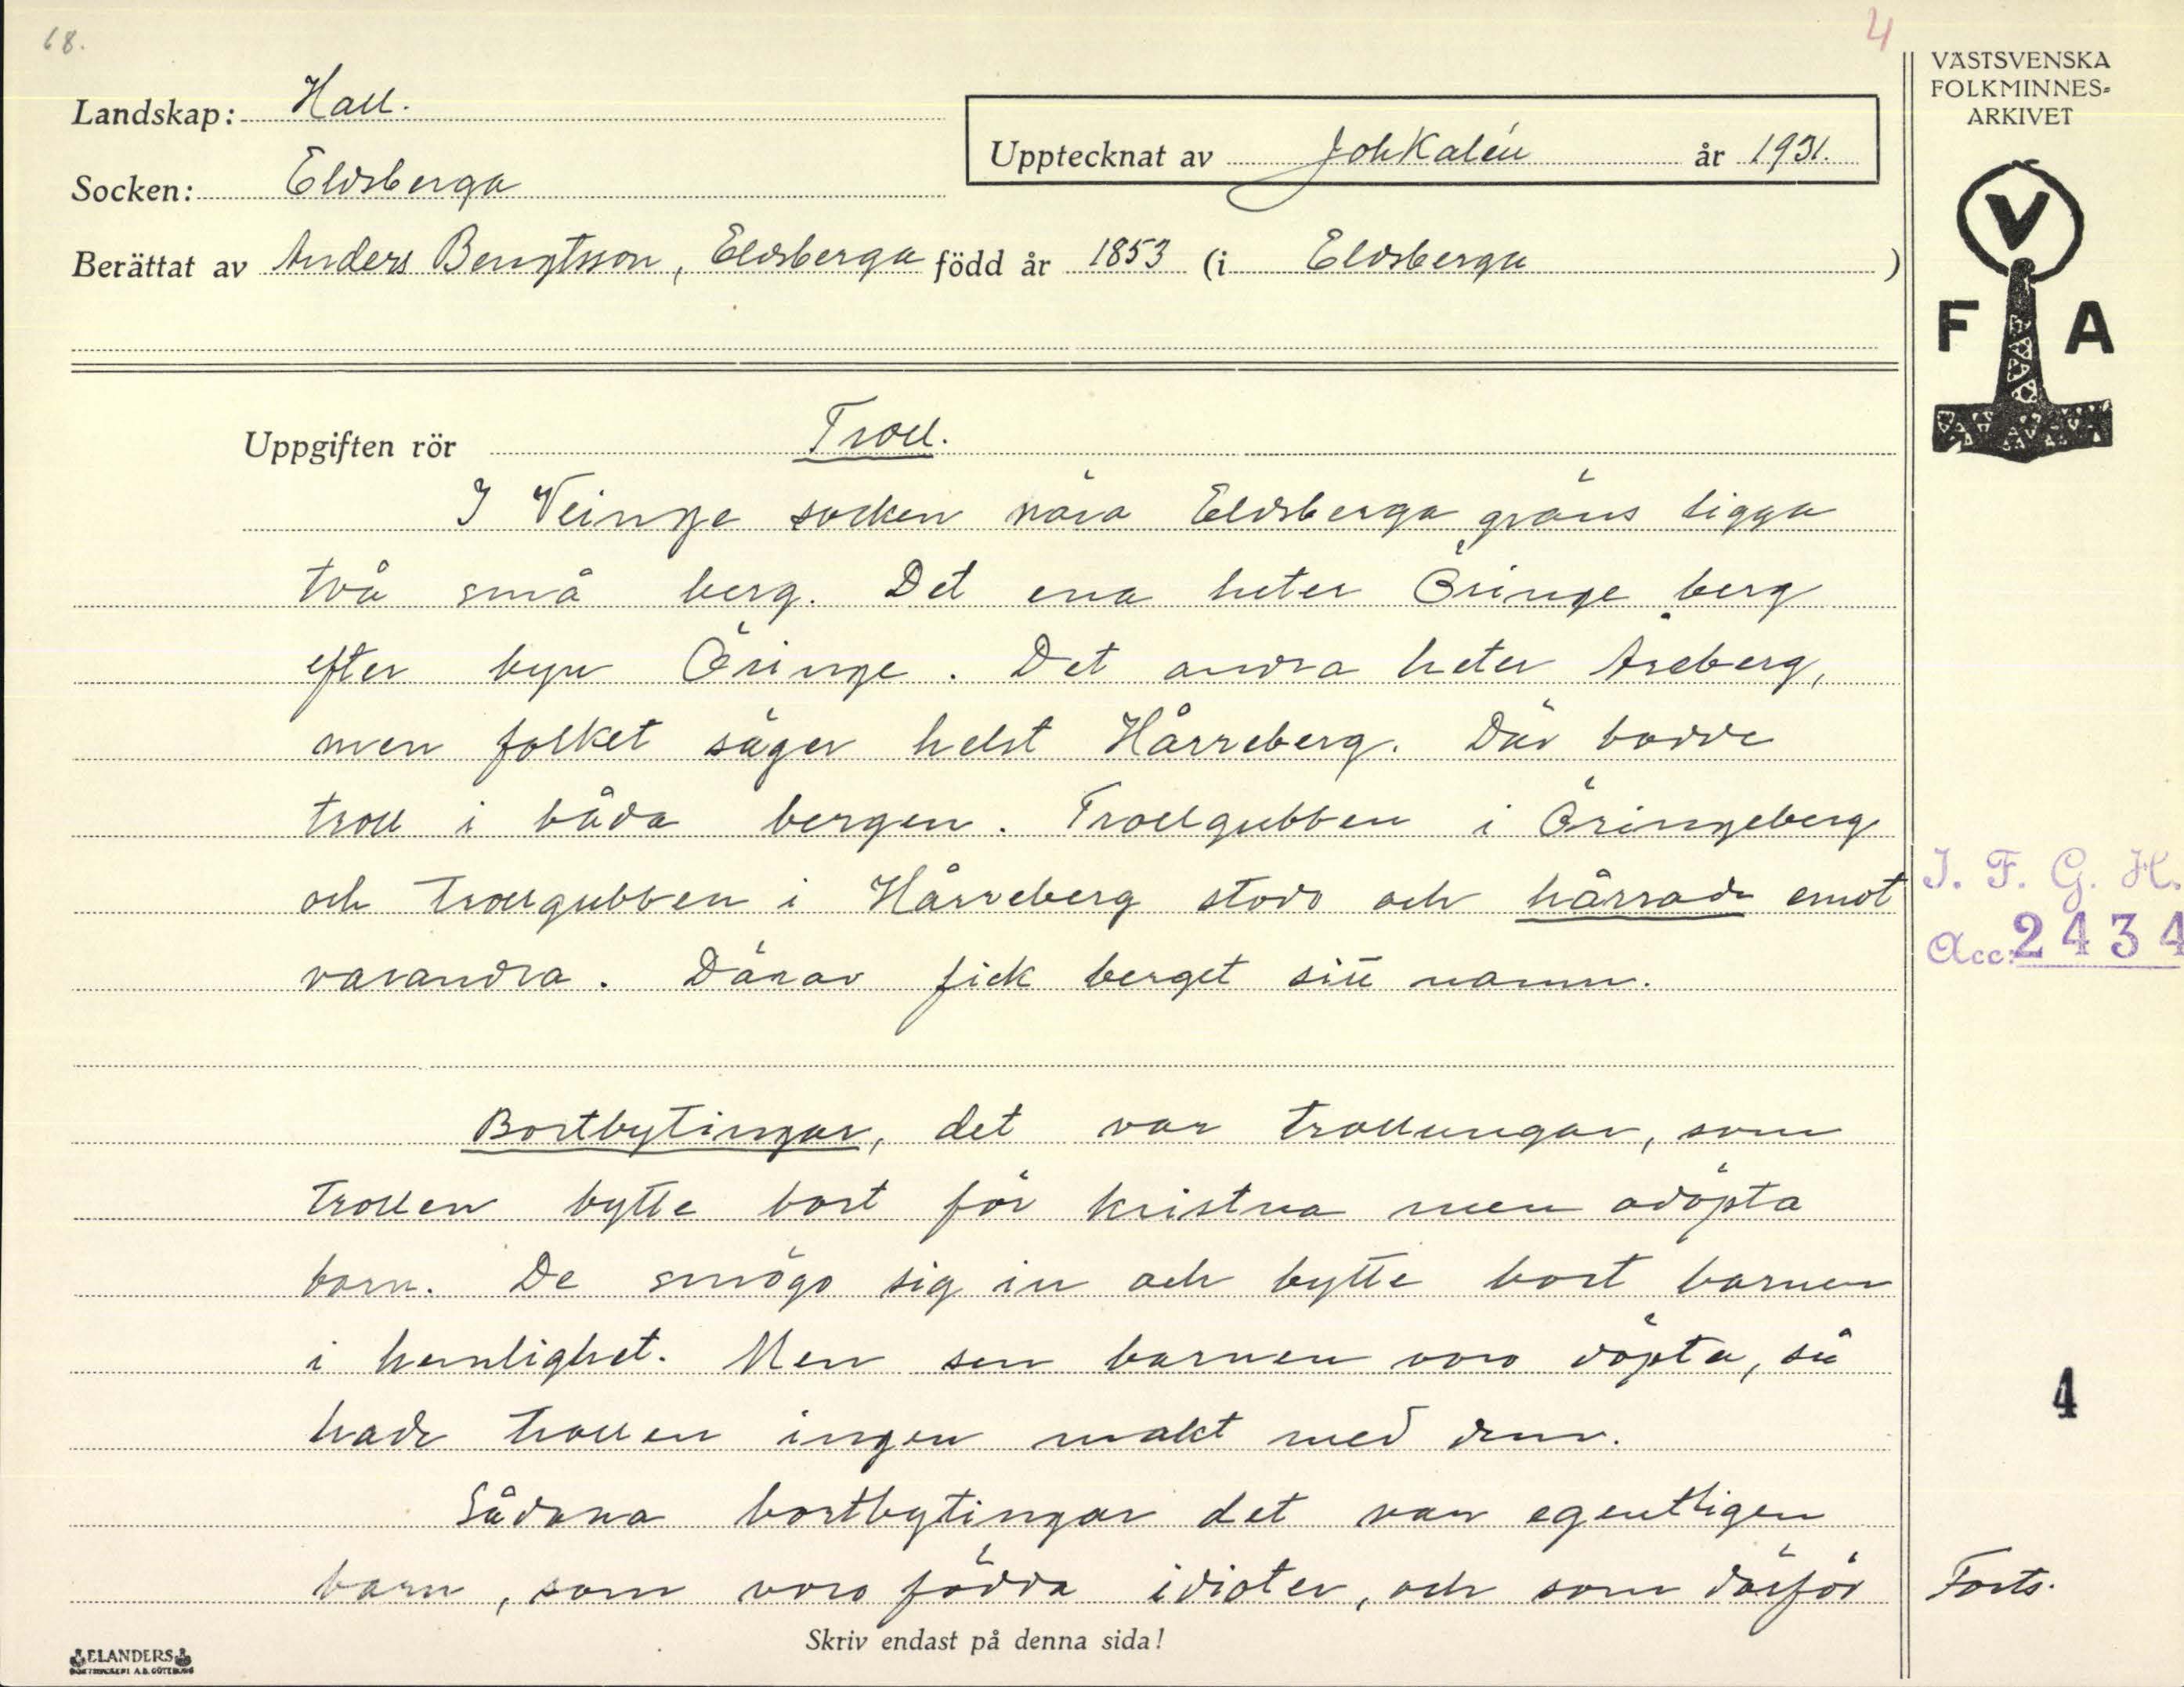 68.
4
Landskap: Hall.
Socken: Eldsberga
Upptecknat av Joh Kalén år 1931.
Berättat av Anders Bengtsson, Eldsberga född år 1853 (i Eldsberga )
VÄSTSVENSKA
FOLKMINNES-
ARKIVET
V
F A
Uppgiften rör Troll.
I Veinge socken nära Eldsberga gräns ligga
två små berg. Det ena heter Öringe berg
efter byn Öringe. Det andra heter Åreberg,
men folket säger helst Hårreberg. Där bodde
troll i båda bergen. Trollgubben i Öringeberg
och trollgubben i Hårreberg stodo och hårrade emot
varandra. Därav fick berget sitt namn.
I. F. G. H.
Acc. 2434
Bortbytingar, det var trollungar, som
trollen bytte bort för kristna men odöpta
barn. De smögo sig in och bytte bort barnen
i hemlighet. Men sen barnen voro döpta, så
hade trollen ingen makt med dem.
4
Sådana bortbytingar det var egentligen
barn, som voro födda idioter, och som därför
Forts.
Skriv endast på denna sida!
ELANDERS
BOKTRYCKERI A.B. GÖTEBORG